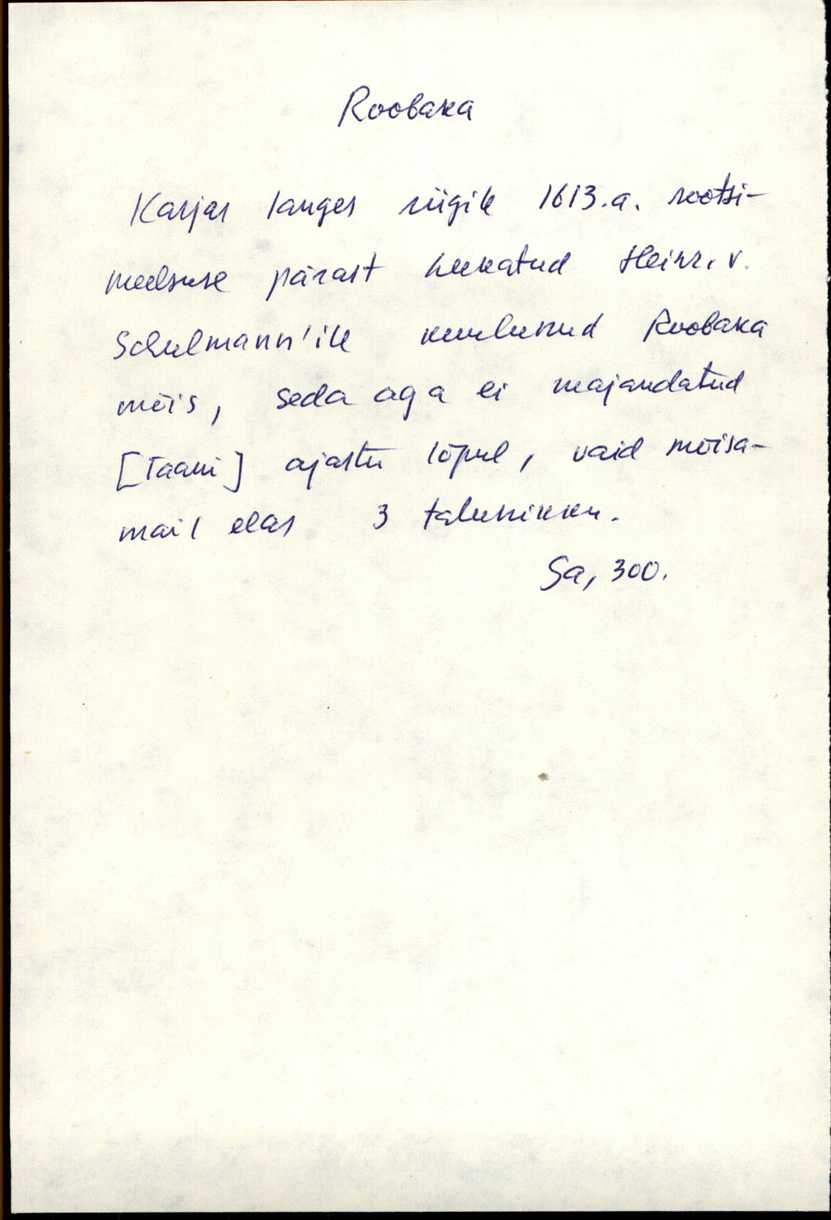 Roobaka
Karjas langes riigile 1613.a. rootsi-
meelsuse pärast hukatud Heinr. v.
Schulmann'ile kuulunud Roobaka
mõis, seda aga ei majandatud
[Taani] ajastu lõpul, vaid mõisa-
mail elas 3 talunikku.
Sa, 300.